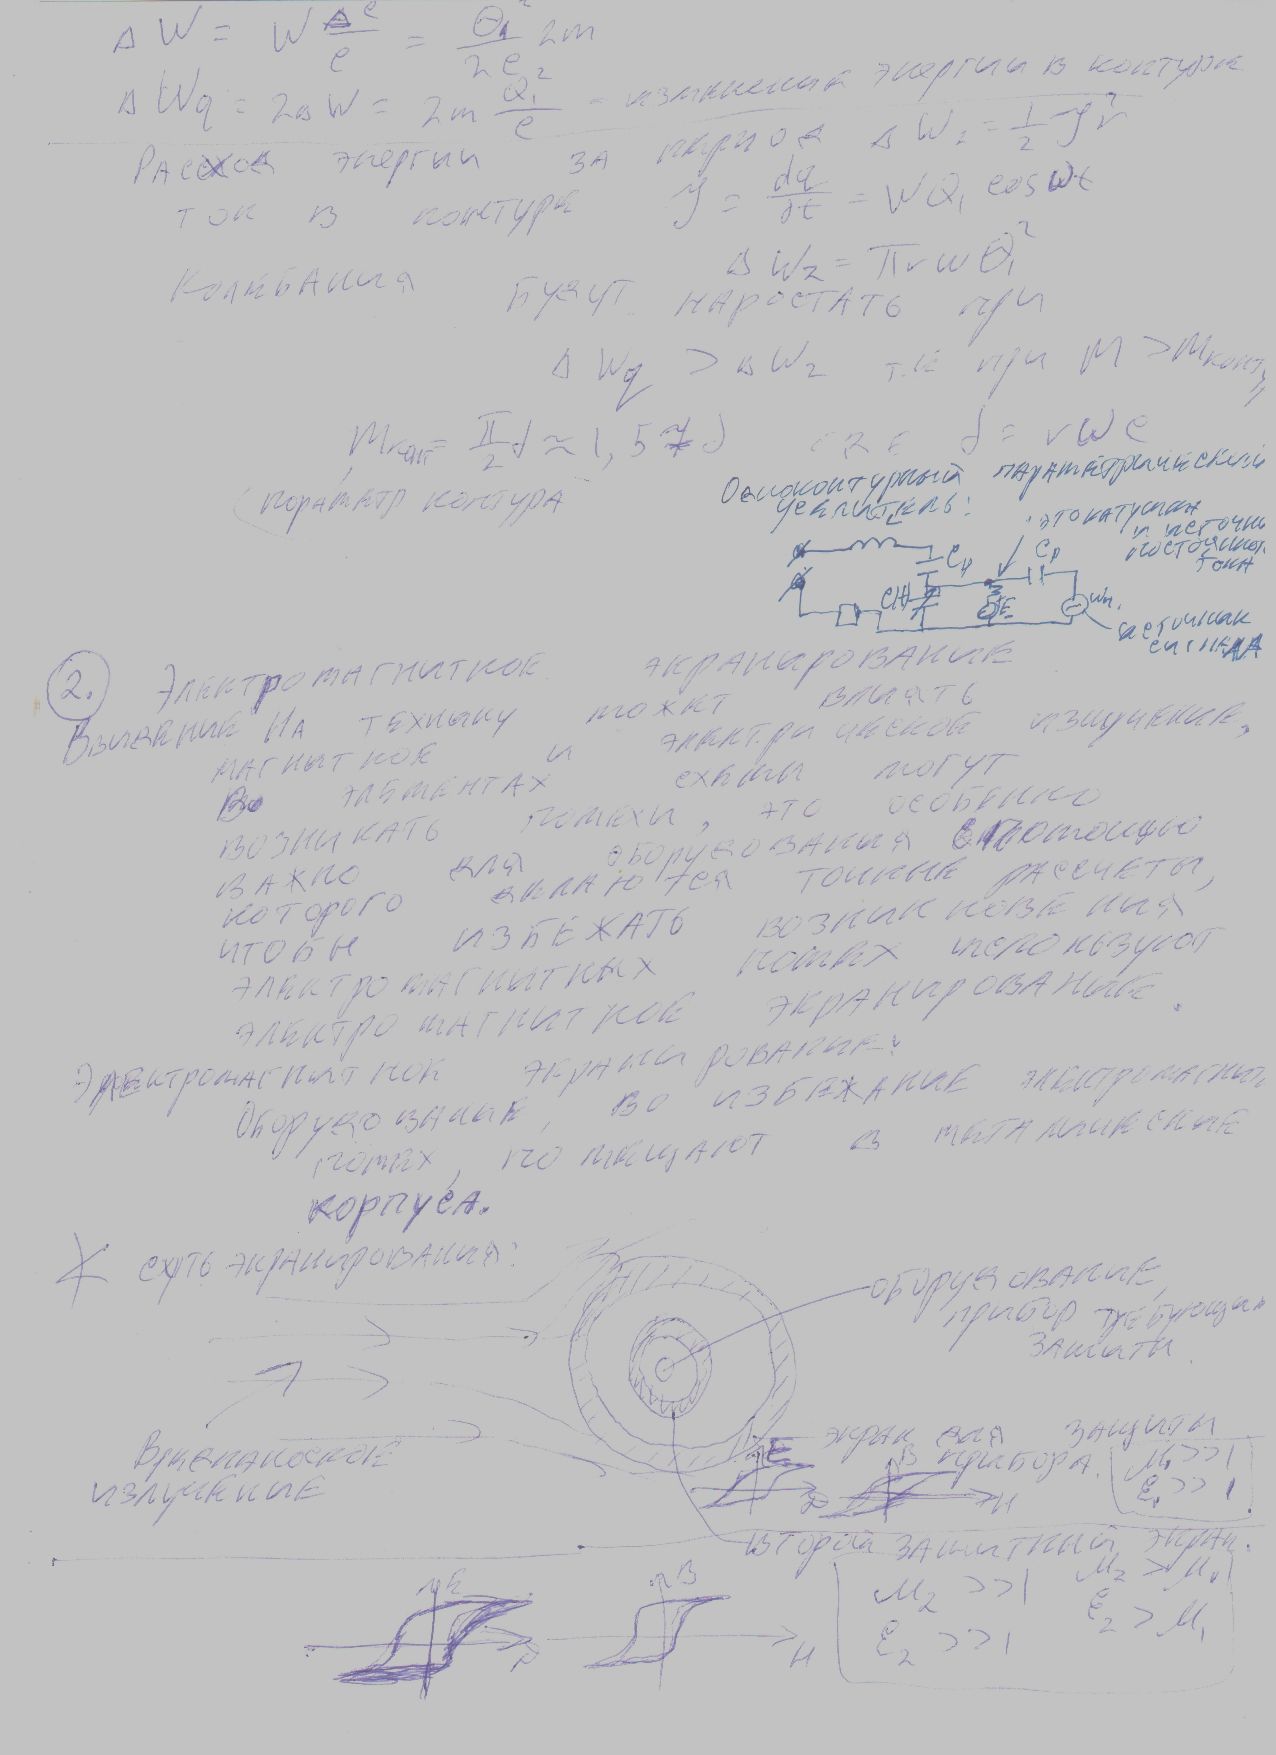 ΔW = W Δe/e = Q₁²/2e 2m
ΔWq = 2ΔW = 2m Q₁²/e - изменение энергии в контуре
Рассход энергии за период ΔW₂ = 1/2 J²r
ток в контуре J = dq/dt = WQ₁ cos wt
ΔW₂ = πrwQ₁²
Колебания будут наростать при
ΔWq > ΔW₂ т.е при M > Mконт,
Mкон = π/2 d ≈ 1,57 d где d = rwe
параметр контура
Одноконтурный параметрический
усилитель:
это катушка
и источник
постоянного
тока
Cр
C(t)
E
источник
сигнала
2. Электромагнитное экранирование
Влияние на технику может влиять
магнитное и электрическое излучение,
во элементах схемы могут
возникать помехи, это особенно
важно для оборудования с помощью
которого делаются точные рассчеты,
чтобы избежать возникновения
электромагнитных помех используют
электромагнитное экранирование.
Электромагнитное экранирование:
Оборудование, во избежание электромагнит
помех, помещают в металические
корпуса.
суть экранирования:
оборудование,
прибор требующий
защиты.
экран для защиты
прибора.
M₁ >> 1
ε₁ >> 1
излучение
E
D
B
H
второй защитный экран.
E
D
B
H
M₂ >> 1 M₂ > M₁
ε₂ >> 1 ε₂ > M₁